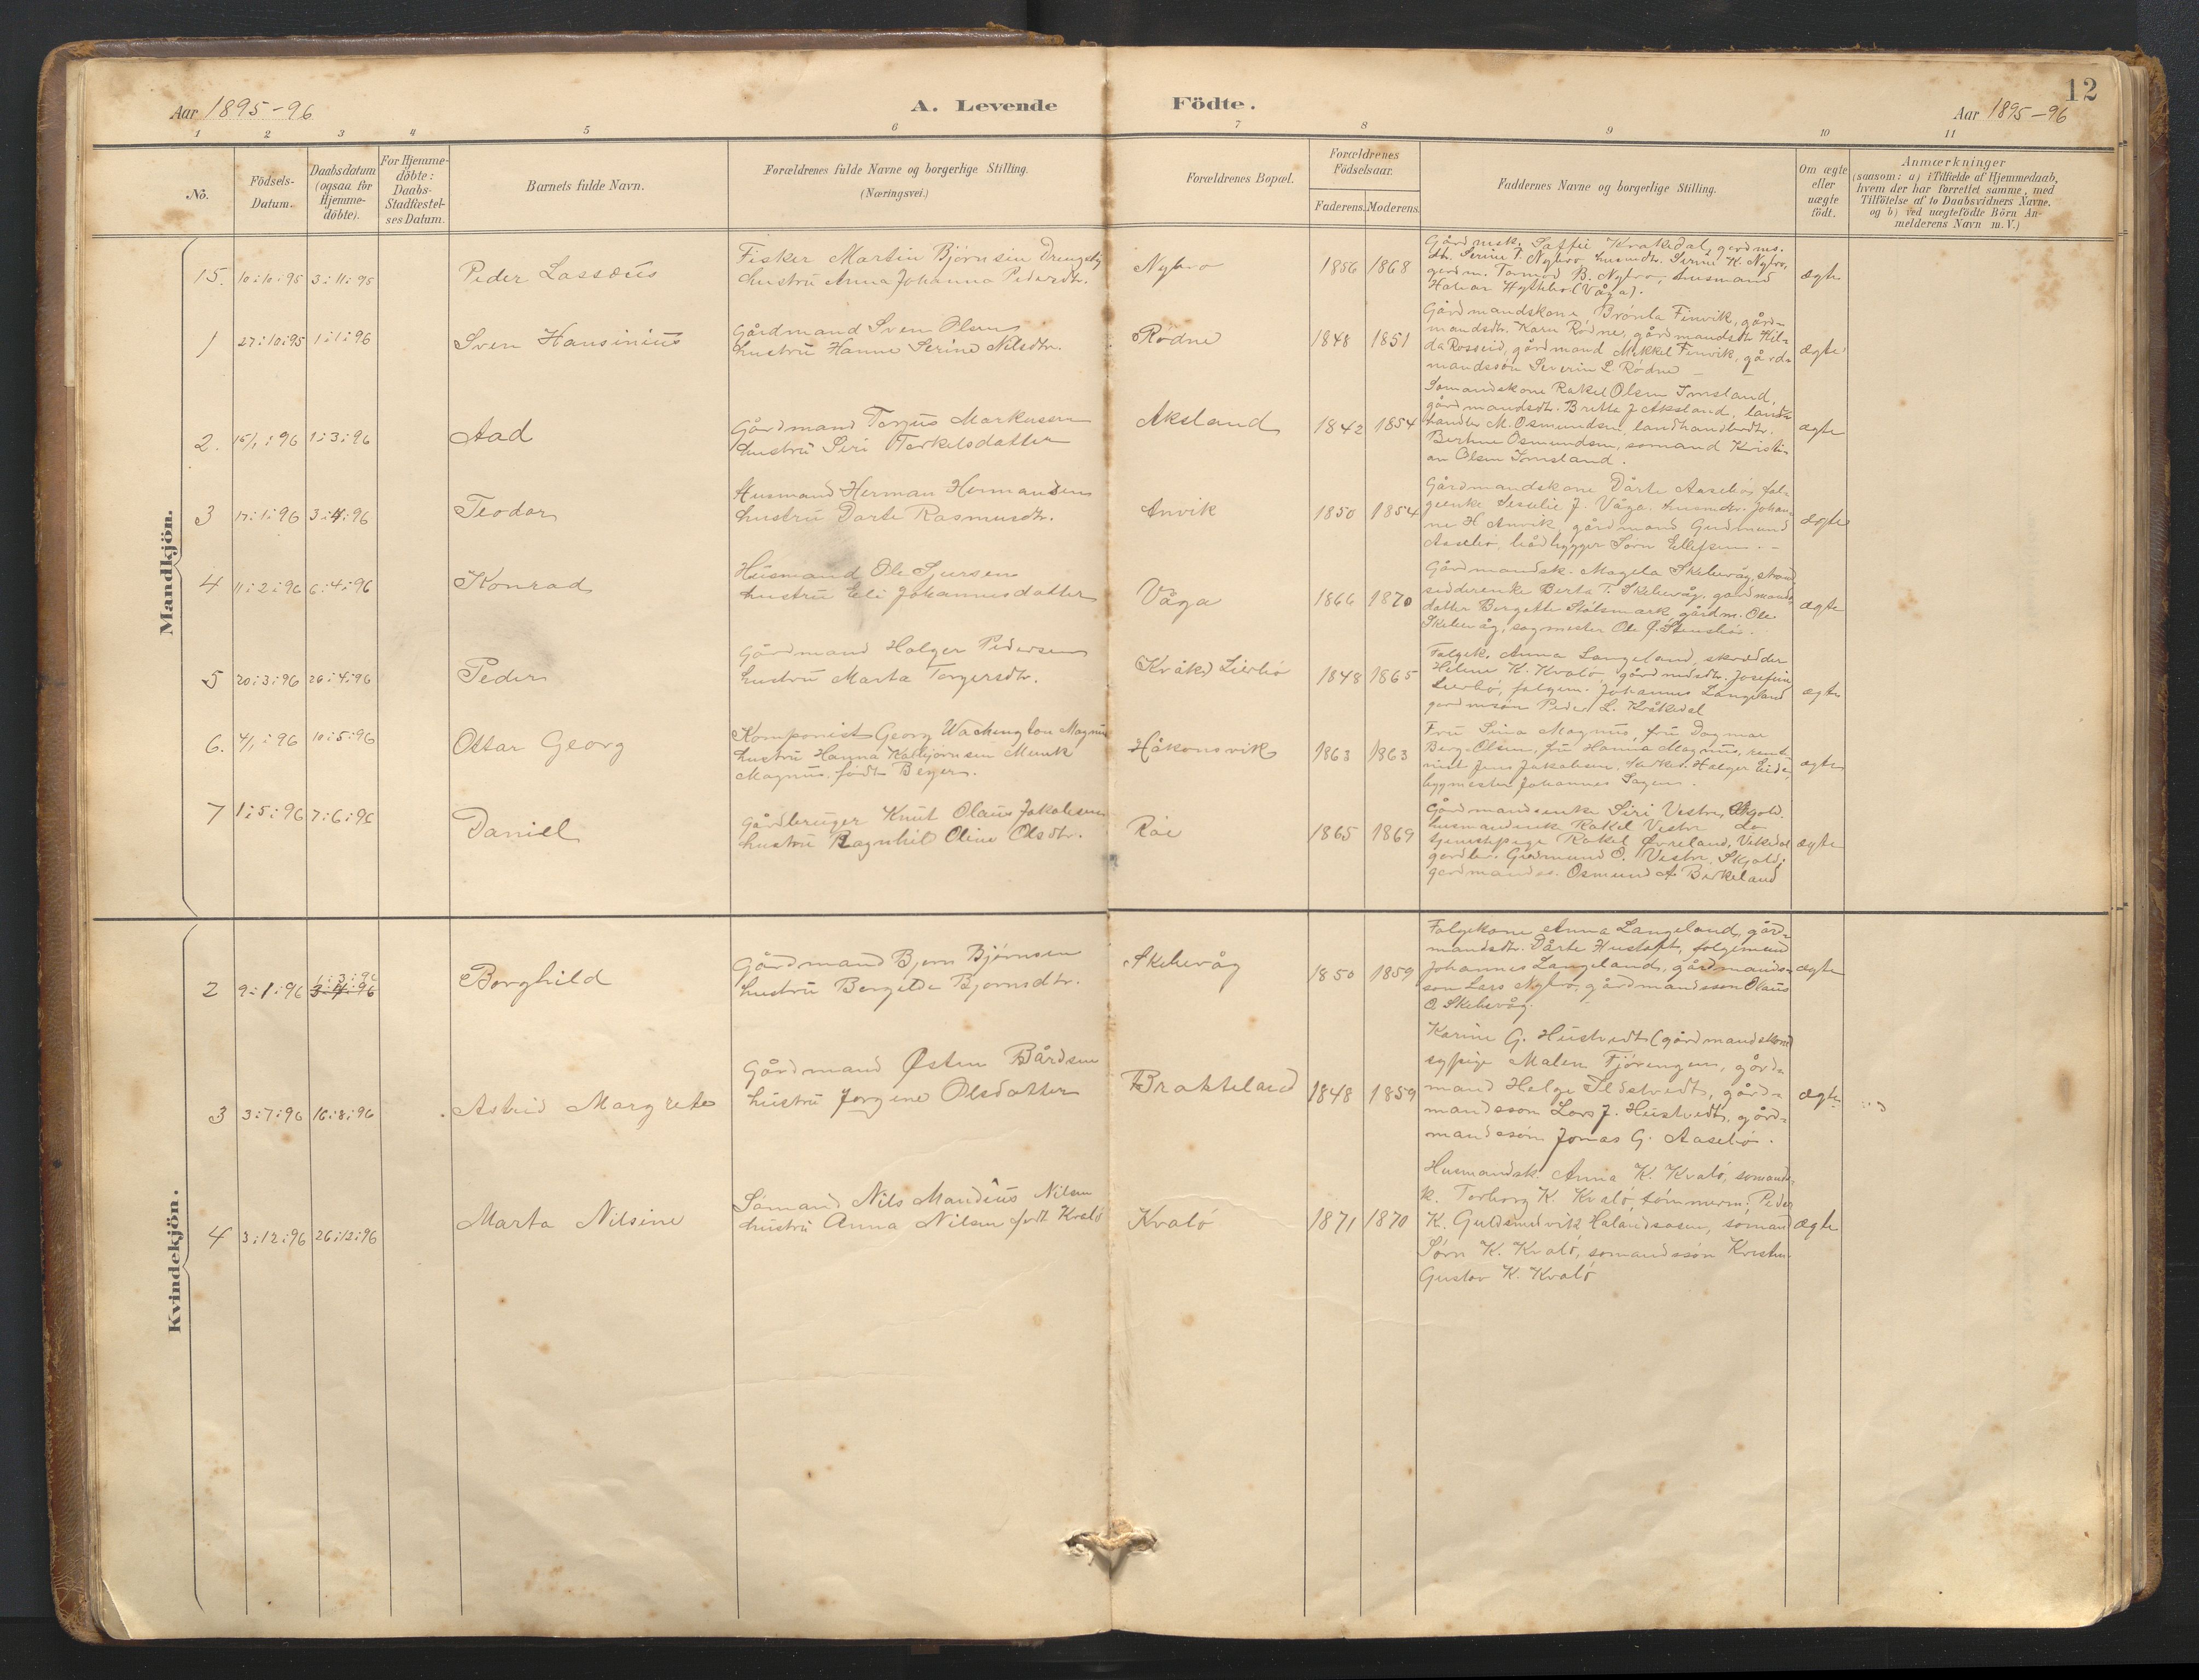 12
Aar 1895-96
A. Levende Födte.
Aar 1895-96
1 2 3 4 5 6 7 8 9 10 11
No.
Födsels-
Datum.
Daabsdatum
(ogsaa for
Hjemme-
döbte).
For Hjemme-
döbte:
Daabs-
Stadfæstel-
ses Datum.
Barnets fulde Navn.
Forældrenes fulde Navne og borgerlige Stilling.
(Næringsvei.)
Forældrenes Bopæl.
Forældrenes
Födselsaar.
Faderens. Moderens.
Faddernes Navne og borgerlige Stilling.
Om ægte
eller
uægte
födt.
Anmærkninger
(saasom: a) i Tilfælde af Hjemmedaab,
hvem der har forrettet samme, med
Tilföielse af to Daabsvidners Navne.
og b) ved uægtefödte Börn An-
melderens Navn m. V.)
Mandkjön.
15. 10:10:95 3:11:95
Peder Lassæus
Fisker Martin Bjørnsen
hustru Anna Johanna Pedersdtr.
Nybro
1856 1868
Krakedal, gerdms.
dtr. Serine T. Nybro, husmdtr. Serine K. Nybro,
gerdm. Tormod B. Nybro, husmand
(Våga).
ægte
1 27:10:95 1:1:96
Sven Hansinius
Gårdmand Sven Olsen
hustru Hanne Serine Nilsdtr.
Rødne
1848 1851
Gårdmandskone Brønla Finvik, gård-
mandsdtr. Karn Rødne, gårdmandsdtr Hil-
da Rosseid, gårdmand Mikkel Finvik, gård-
mandssøn Severin L Rødne
ægte
2. 15/1:96 1:3:96
Aad
Gårdmand Torjus Markusen
hustru Siri Torkelsdatter
Aksland
1842 1854
Sømandskone Rakel Olsen Imsland,
gårdmandsdtr. Britta J Aksland, land-
handler M. Osmundsen, landhandlerdtr.
Berthine Osmundsen, sømand Kristi-
an Olsen Imsland.
ægte
3 17:1:96 3:4:96
Teodor
Husmand Herman Hermansen
hustru Dorte Rasmusdtr.
Anvik
1850 1854
Gårdmandskone Dårte Aasebø, fol-
geenke J. Våga. husmdtr. Johan-
ne H Anvik, gårdmand Gudmund
Aasebø, bådbygger Sørn Ellefsen.
ægte
4 11:2:96 6:4:96
Konrad
Husmand Ole Sjursen
hustru Eli Johannesdatter
Våga
1866 1870
Gårdmandsk. Magela Skeievåg, strand-
sidderenke Berta T. Skeievåg, gårdmands-
datter Bergette Stølsmark, gårdm. Ole
Skeievåg, sagmester Ole
ægte
5 20:3:96 26:4:96
Peder
Gårdmand Holger Pedersen
hustru Marta Torgersdtr.
Kråkd Lierbø
1848 1865
Følgek. Anna Langeland, skrædder
Helene K. Kvalø, gårdmdsdtr. Josefine
Lierbø, følgem. Johannes Langeland
gardmsøn Peder L. Kråkedal
ægte
6. 4/1:96 10:5:96
Ottar Georg
Komponist Georg Wachington Magnus
hustru Hanna Kalbjørnsen Munk
Magnus født Beyer.
Håkonsvik
1863 1863
Fru Sina Magnus, fru Dagmar
Berg-Olsen, fru Hanna Magnus,
Jens Jakobsen, Holger Eide,
bygmester Johannes Sagen.
ægte
7 1:5:96 7:6:96
Daniel
Gårdbruger Knut Olaus Jakobsen
hustru Ragnhil Oline Olsdtr.
Røe
1865 1869
Gårdmandsenke Siri Vestre, Skjold.
husmandsenke Rakel Vestre do
tjenestepige Rakel Øvreland, Vikedal
gardbr. Gudmund O. Vestre, Skjold;
gardmands. Osmund A. Birkeland
ægte
Kvindekjön.
2 9:1:96 1:3:96
3:4:96
Borghild
Gårdmand Bjørn Bjørnsen
hustru Bergitte Bjørnsdtr.
Skeievåg
1850 1859
Følgekone Anna Langeland, gård-
mandsdtr. Dårte Hustoft, følgemand
Johannes Langeland, gårdmands-
søn Lars Nybro, gårdmandssøn Olaus
O Skeievåg.
ægte
3 3:7:96 16:8:96
Astrid Margrete
Gårdmand Østen Bårdsen
hustru Jorgine Olsdatter
Brakteland
1848 1859
Karine G. Hustvedt (gårdmandskone)
sypige Malen Fjørengen, gård-
mand Helge Sedstvedt, gård-
mandssøn Lars J. Hustvedt, gård-
mandssøn Jonas G. Aasebø.
ægte
4 3:12:96 26:12:96
Marta Nilsine
Sømand Nils Mandius Nilsen
hustru Anna Nilsen født Kvalø
Kvalø
1871 1870
Husmandsk. Anna K. Kvalø, sømands-
k. Torborg K. Kvalø, tømmerm. Peder
K. Guldsmedvik, sømand
Sørn K. Kvalø, sømandssøn Kristen
Gustav K. Kvalø
ægte